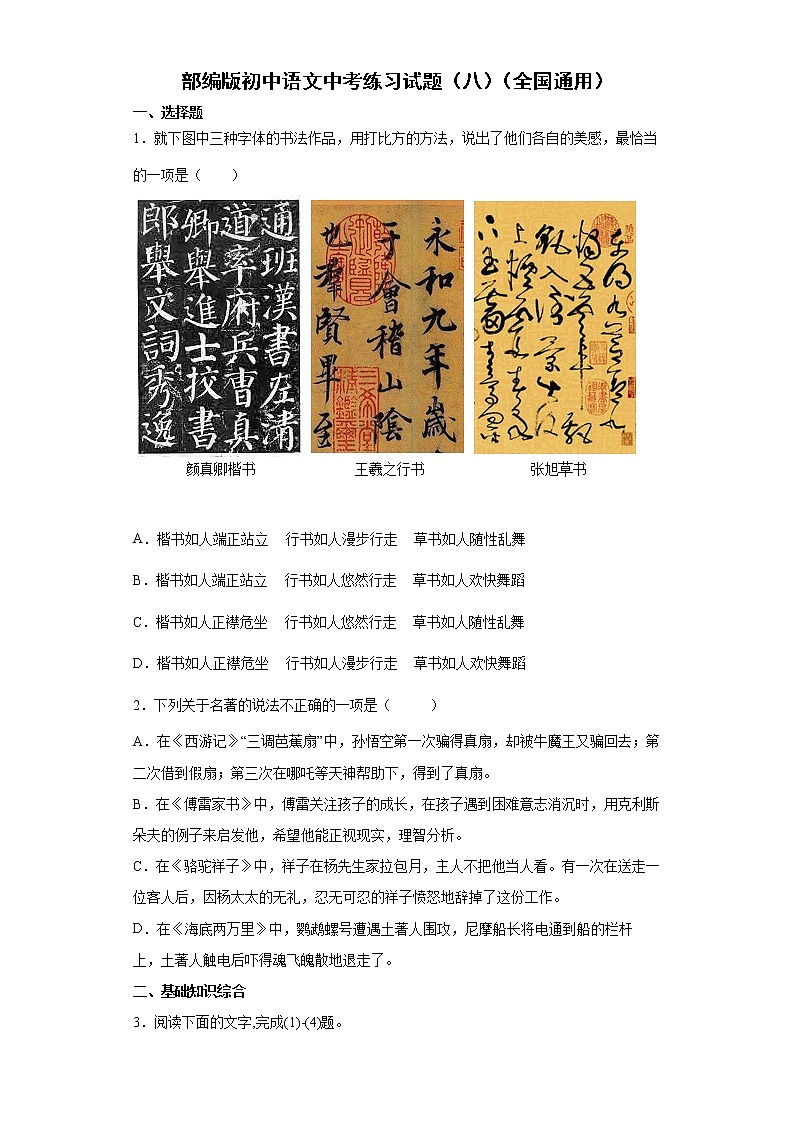 部编版初中语文中考练习试题（八）（全国通用）
一、选择题
1．就下图中三种字体的书法作品，用打比方的方法，说出了他们各自的美感，最恰当
的一项是（　　）
通班漢書左清
道率府兵曹真
卿舉進士挍書
郎舉文詞秀逸
永和九年歲
于會稽山陰
也羣賢畢至
颜真卿楷书　王羲之行书　张旭草书
A．楷书如人端正站立　行书如人漫步行走　草书如人随性乱舞
B．楷书如人端正站立　行书如人悠然行走　草书如人欢快舞蹈
C．楷书如人正襟危坐　行书如人悠然行走　草书如人随性乱舞
D．楷书如人正襟危坐　行书如人漫步行走　草书如人欢快舞蹈
2．下列关于名著的说法不正确的一项是（　　）
A．在《西游记》“三调芭蕉扇”中，孙悟空第一次骗得真扇，却被牛魔王又骗回去；第
二次借到假扇；第三次在哪吒等天神帮助下，得到了真扇。
B．在《傅雷家书》中，傅雷关注孩子的成长，在孩子遇到困难意志消沉时，用克利斯
朵夫的例子来启发他，希望他能正视现实，理智分析。
C．在《骆驼祥子》中，祥子在杨先生家拉包月，主人不把他当人看。有一次在送走一
位客人后，因杨太太的无礼，忍无可忍的祥子愤怒地辞掉了这份工作。
D．在《海底两万里》中，鹦鹉螺号遭遇土著人围攻，尼摩船长将电通到船的栏杆
上，土著人触电后吓得魂飞魄散地退走了。
二、基础知识综合
3．阅读下面的文字,完成(1)-(4)题。